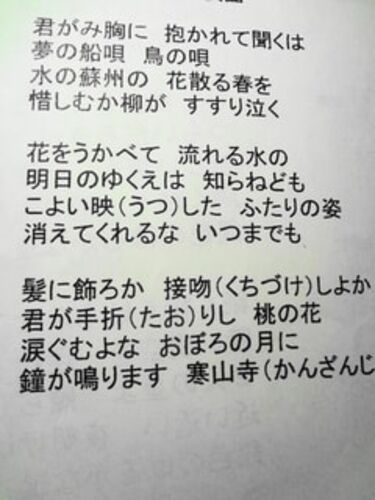 君がみ胸に　抱かれて聞くは
夢の船唄　鳥の唄
水の蘇州の　花散る春を
惜しむか柳が　すすり泣く
花をうかべて　流れる水の
明日のゆくえは　知らねども
こよい映(うつ)した　ふたりの姿
消えてくれるな　いつまでも
髪に飾ろか　接吻(くちづけ)しよか
君が手折(たお)りし　桃の花
涙ぐむよな　おぼろの月に
鐘が鳴ります　寒山寺(かんざんじ